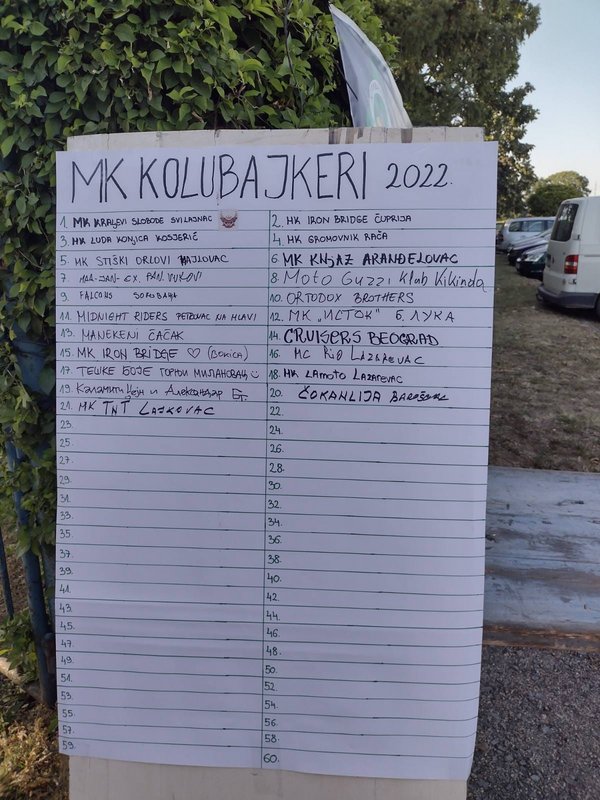 MK KOLUBAJKERI 2022.
1. MK KRALJEVI SLOBODE SVILAJNAC
2. MK IRON BRIDGE ĆUPRIJA
3. MK LUDA KONJICA KOSJERIĆ
4. MK GROMOVNIK RAČA
5. MK STIŠKI ORLOVI VAJLOVAC
6. MK KNJAZ ARANĐELOVAC
7.
8. Moto Guzzi Klub Kikinda
9. FALCONS
10. ORTODOX BROTHERS
11. MIDNIGHT RIDERS PETROVAC NA MLAVI
12. МК „ИСТОК" Б. ЛУКА
13. MANEKENI ČAČAK
14. CRUISERS BEOGRAD
15. MK IRON BRIDGE ♡ (BOKICA)
16. MC RIO LAZAREVAC
17. ТЕШКЕ БОЈЕ ГОРЊИ МИЛАНОВАЦ
18. MK LAMOTO LAZAREVAC
19. Каламити Џејн и Александар
20. ČOKANLIJA
21. MK TNT LAJKOVAC
22.
23.
24.
25.
26.
27.
28.
29.
30.
31.
32.
33.
34.
35.
36.
37.
38.
39.
40.
41.
42.
43.
44.
45.
46.
47.
48.
49.
50.
51.
52.
53.
54.
55.
56.
57.
58.
59.
60.